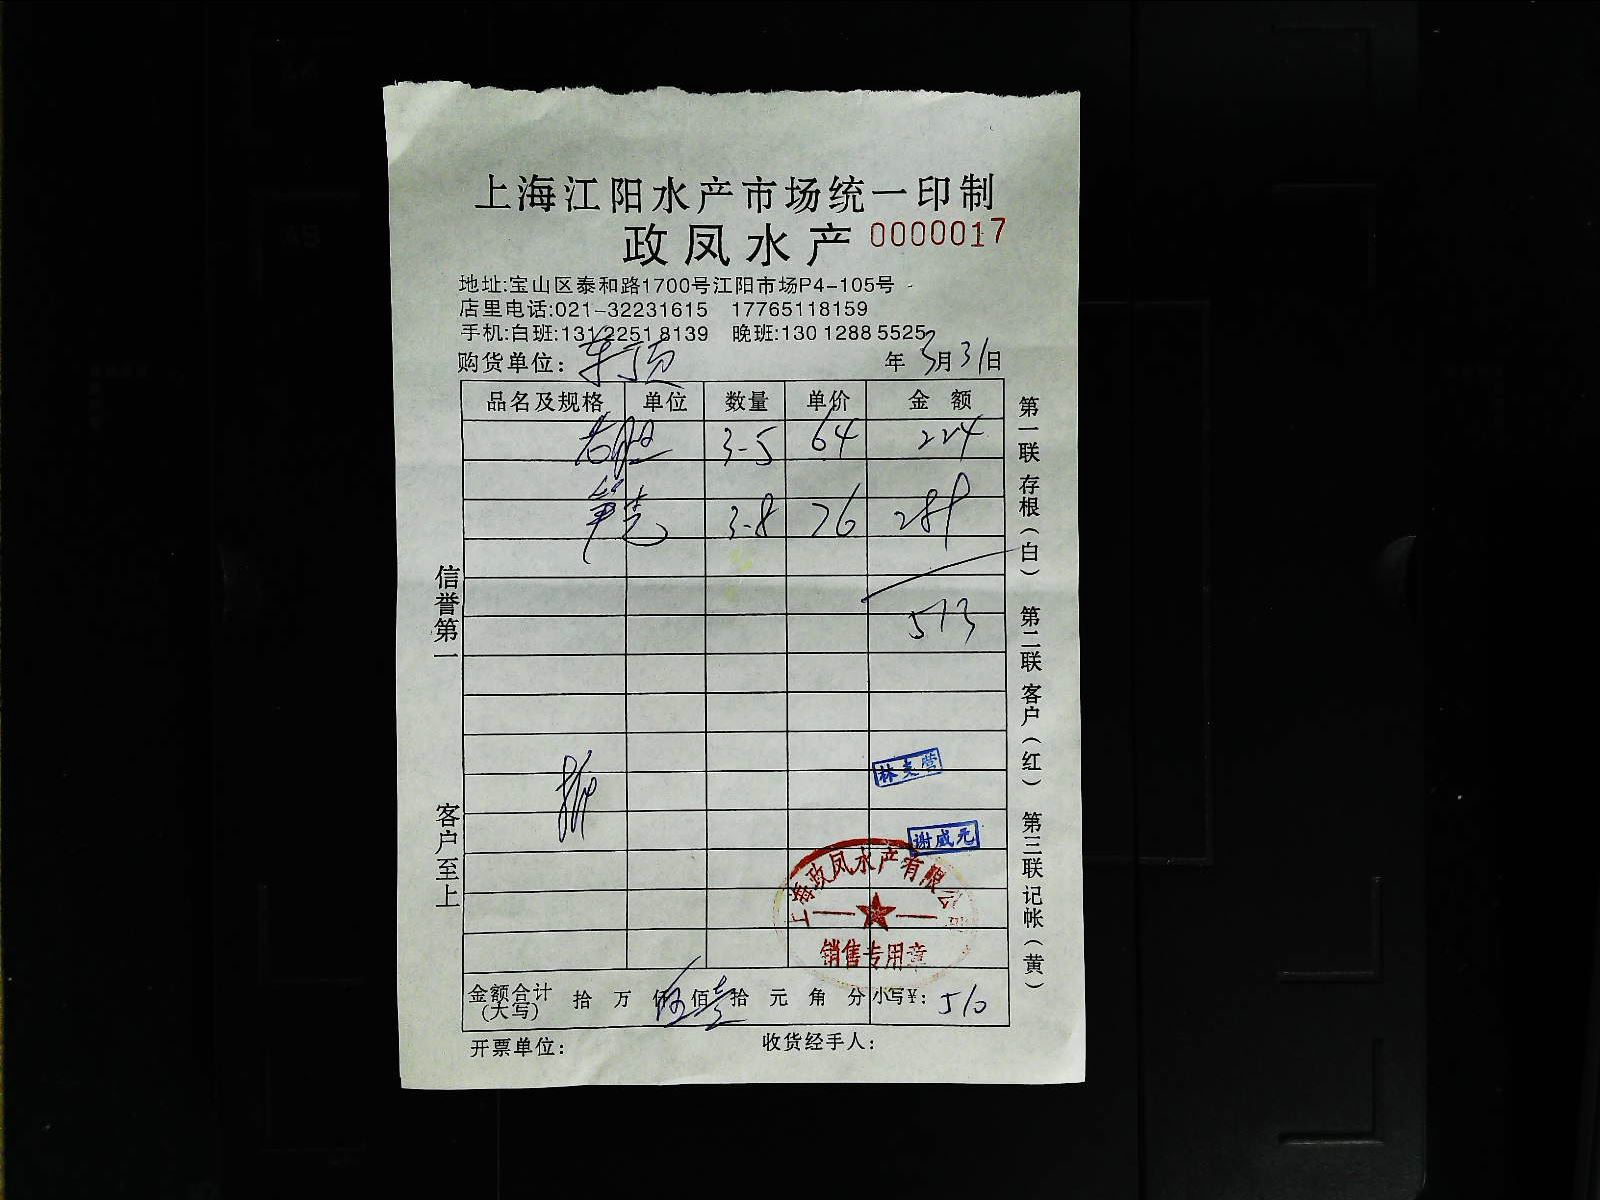 上海江阳水产市场统一印制
政凤水产 0000017
地址:宝山区泰和路1700号江阳市场P4-105号
店里电话:021-32231615 17765118159
手机:白班:13122518139 晚班:13012885525
购货单位: 年 3月31日
品名及规格 单位 数量 单价 金额
3-5 64 224
笋壳 3-8 76 289
513
信誉第一
客户至上
第一联 存根(白) 第二联 客户(红) 第三联 记帐(黄)
谢威元
上海政凤水产有限公司
销售专用章
金额合计(大写) 拾 万 仟伍佰壹拾 元 角 分 小写¥: 510
开票单位: 收货经手人: